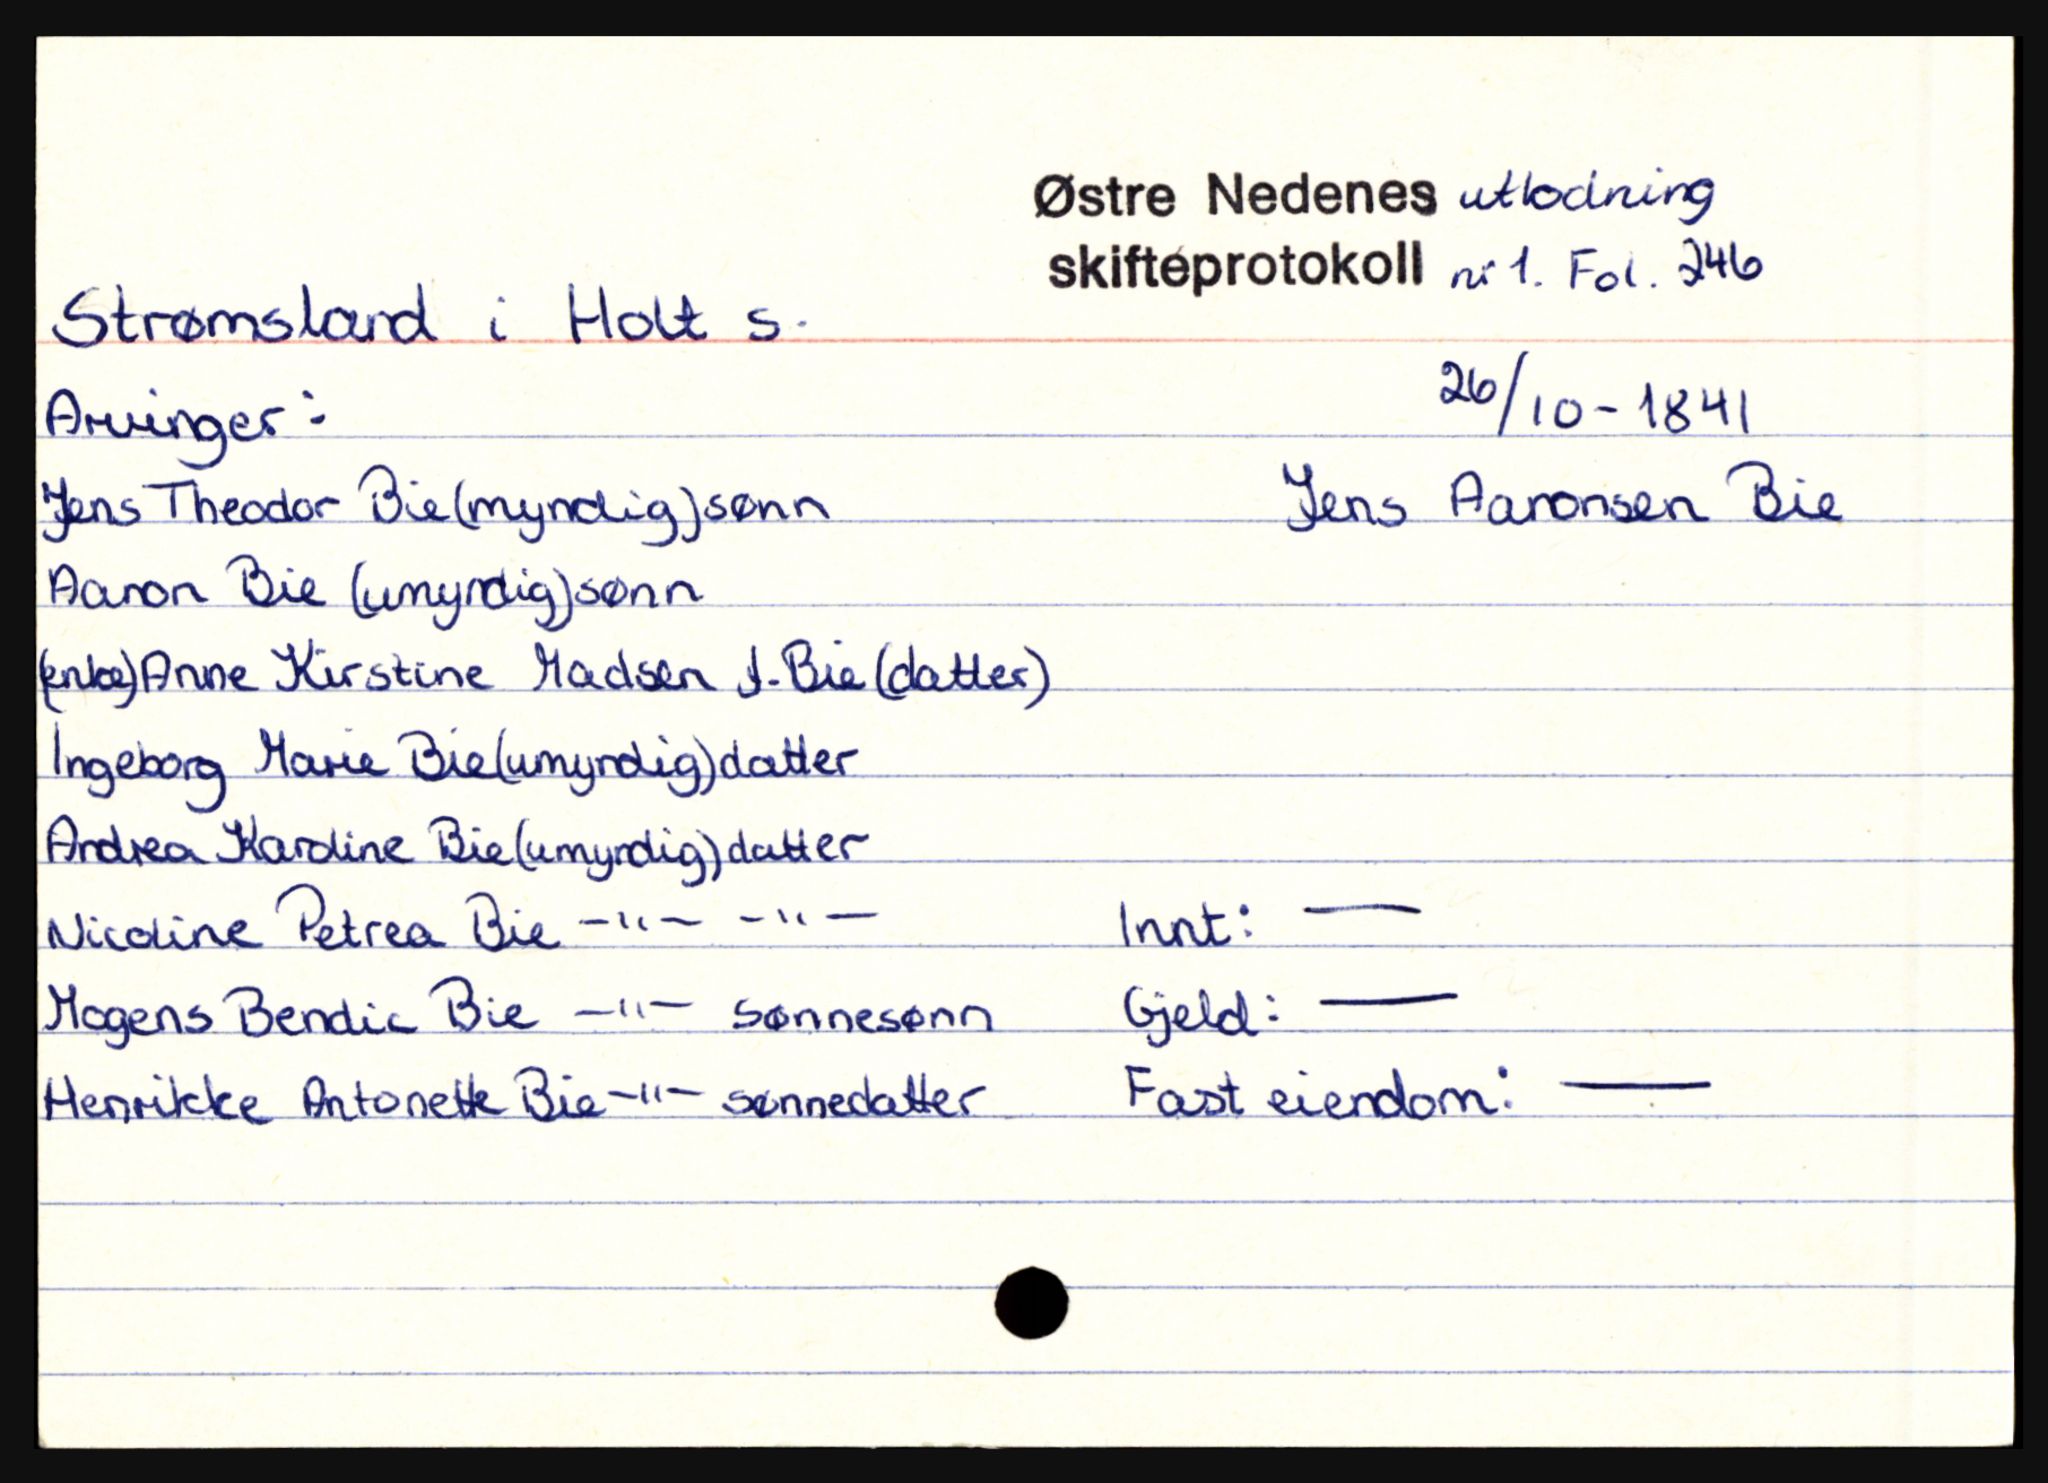 Østre Nedenes utlodning
skifteprotokoll nr 1. Fol. 246
Strømsland i Holt s.
26/10-1841
Arvinger:
Jens Aaronsen Bie
Jens Theodor Bie (myndig) sønn
Aaron Bie (umyndig) sønn
(enke) Anne Kirstine Madsen f. Bie (datter)
Ingeborg Marie Bie (umyndig) datter
Andrea Karoline Bie (umyndig) datter
Nicoline Petrea Bie -"- -"-
Mogens Bendic Bie -"- sønnesønn
Henrikke Antonette Bie -"- sønnedatter
Innt: —
Gjeld: —
Fast eiendom: —